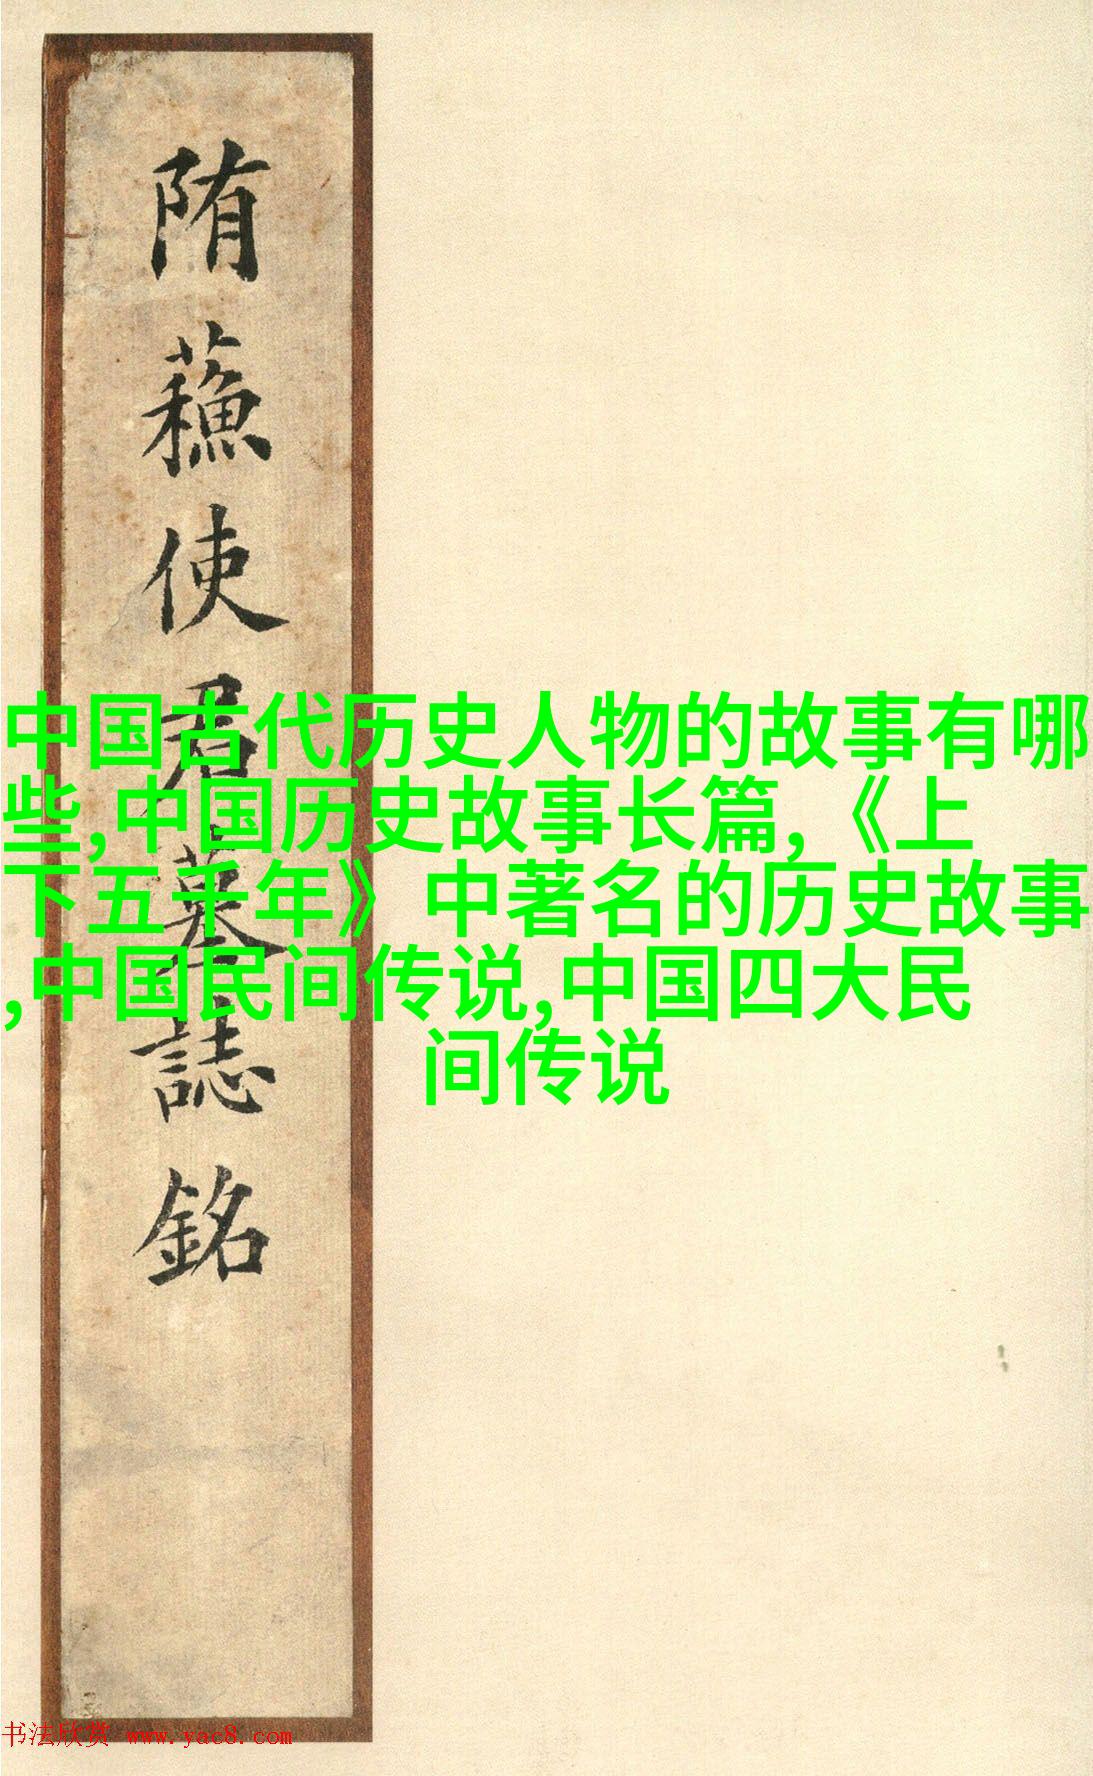 陏蘓使君墓誌銘
中国古代历史人物的故事有哪
些,中国历史故事长篇,《上
下五千年》中著名的历史故事
,中国民间传说,中国四大民
间传说
书法欣赏 www.yac8.com